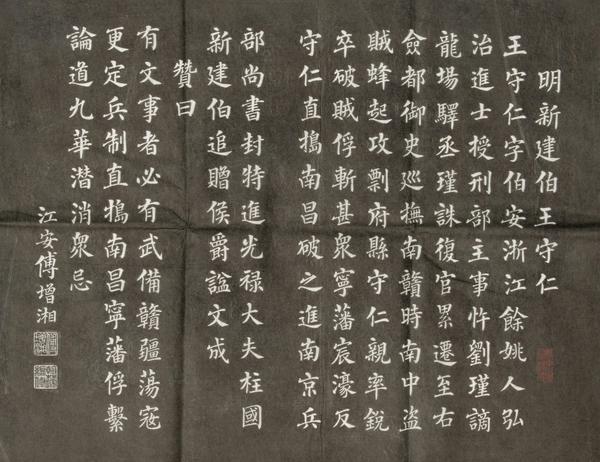 明新建伯王守仁
王守仁字伯安浙江餘姚人弘
治進士授刑部主事忤劉瑾謫
龍場驛丞瑾誅復官累遷至右
僉都御史巡撫南贛時南中盜
賊蜂起攻剽府縣守仁親率銳
卒破賊俘斬甚衆寧藩宸濠反
守仁直搗南昌破之進南京兵
部尚書封特進光祿大夫柱國
新建伯追贈侯爵諡文成
贊曰
有文事者必有武備贛疆蕩寇
更定兵制直搗南昌寧藩俘繫
論道九華潛消衆忌
江安傅增湘